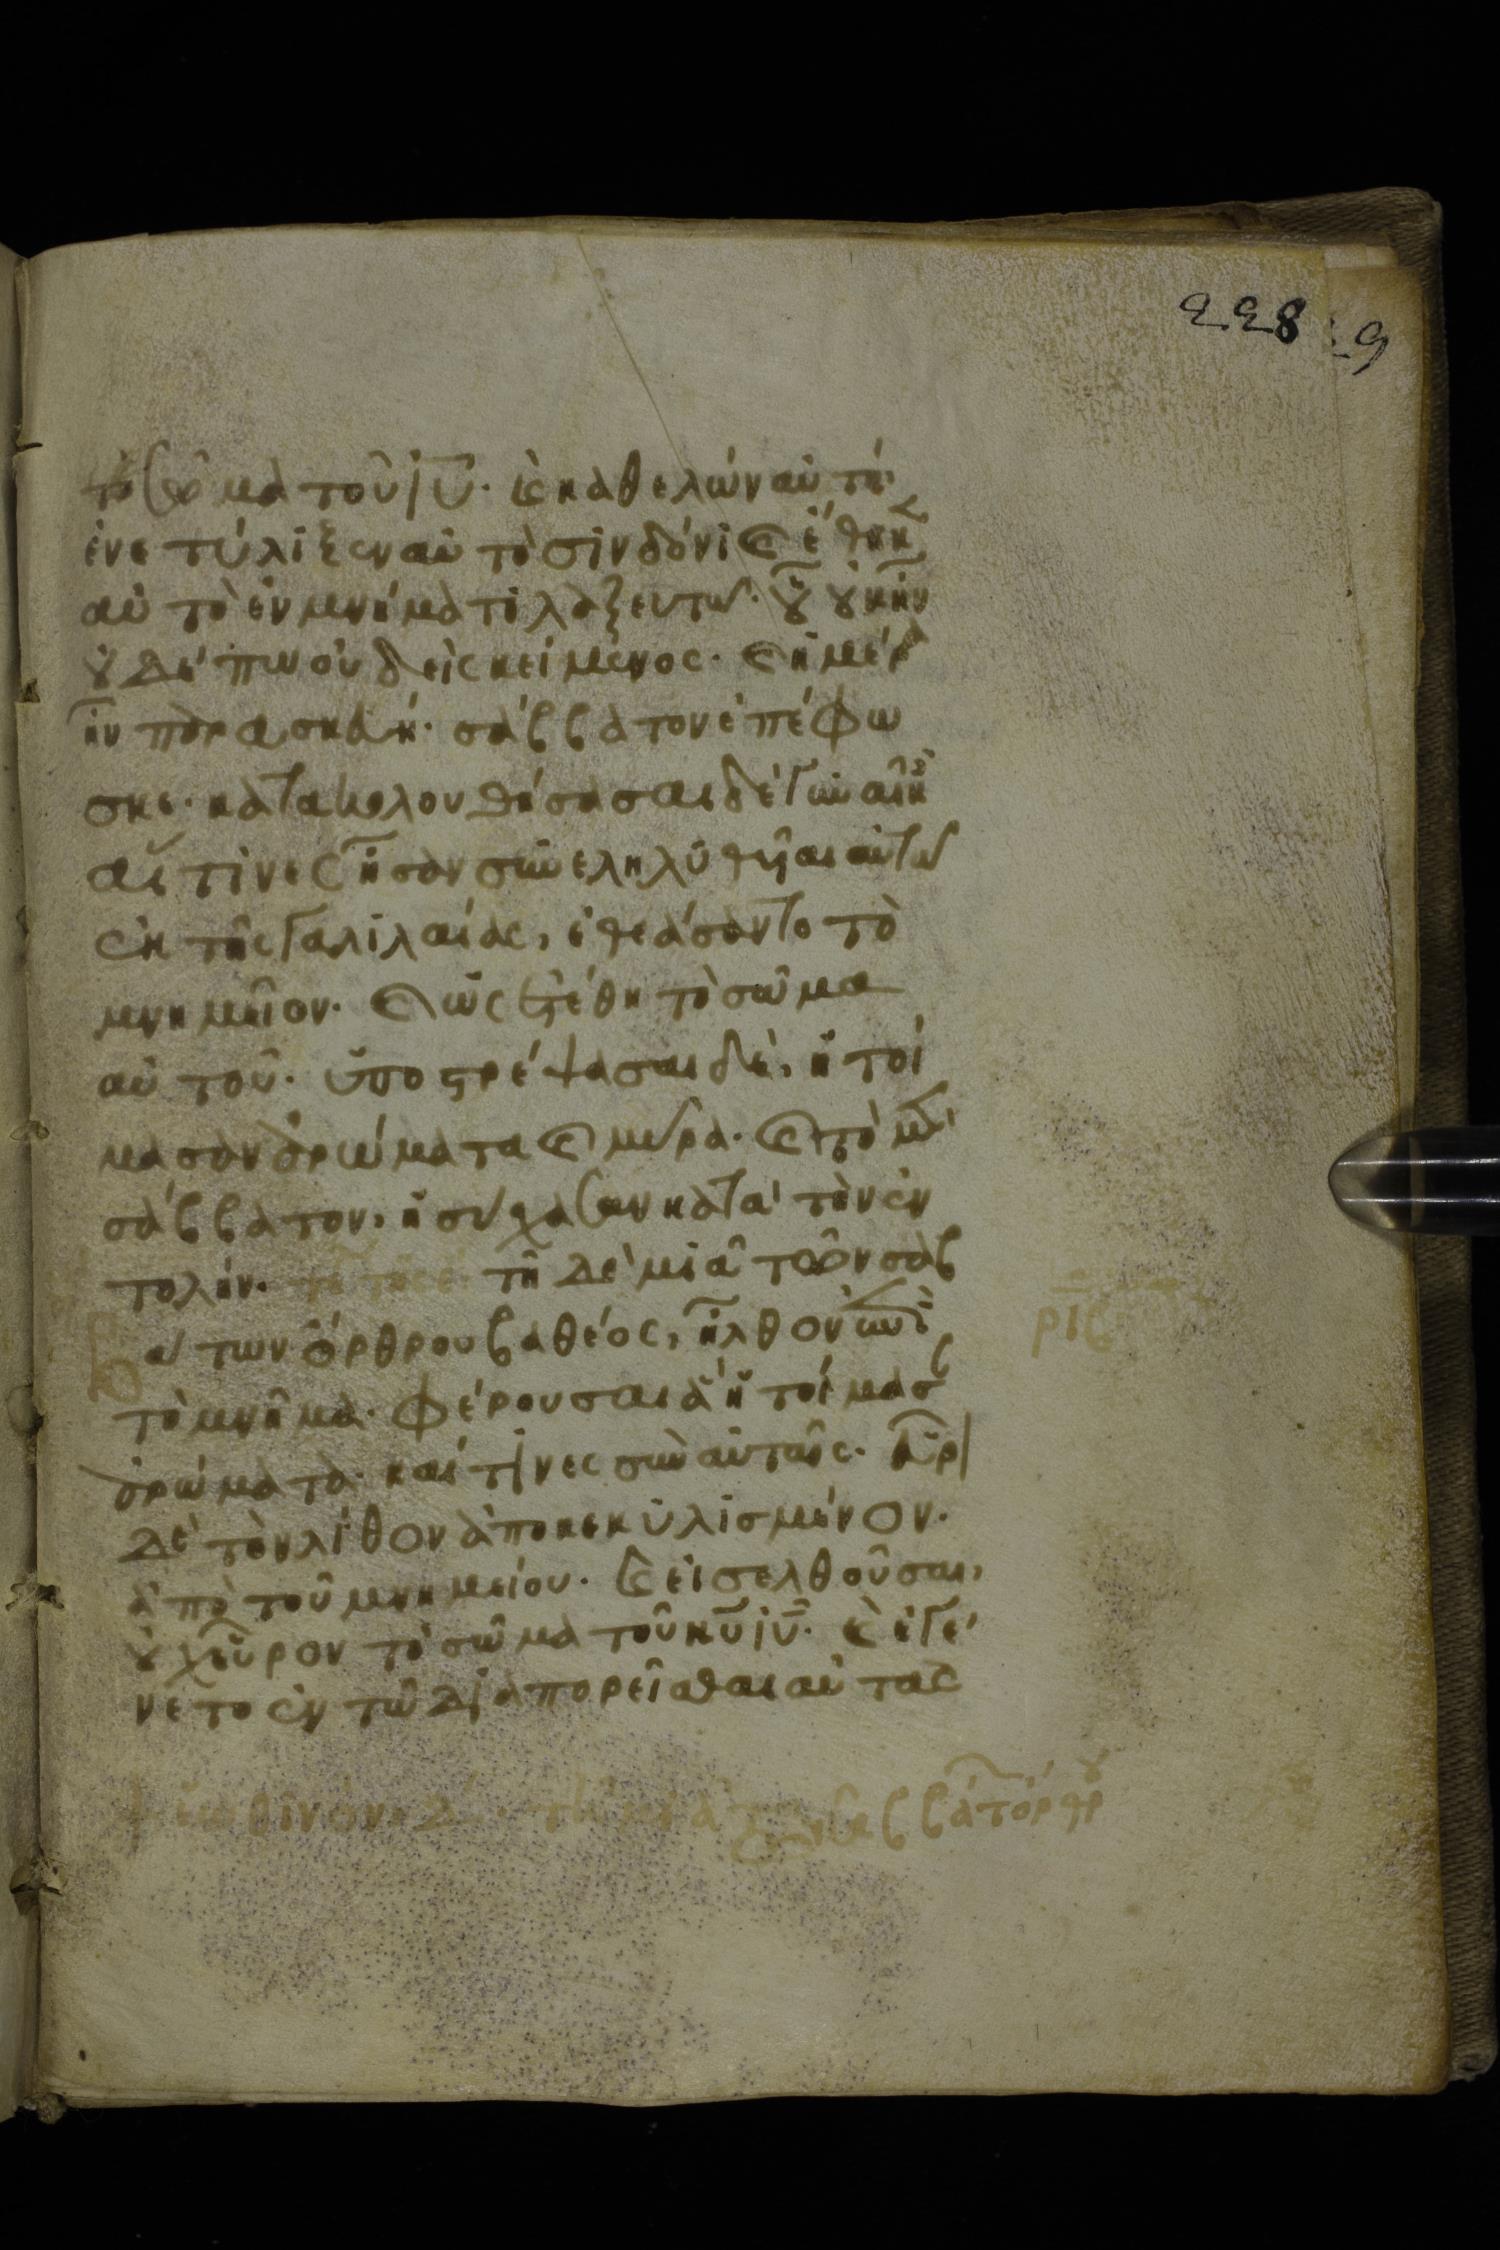 228
9
τὸ σῶμα τοῦ ἰυ̅· καὶ καθελὼν αὐτὸ,
ἐνετύλιξεν αὐτὸ σινδόνι καὶ ἔθηκεν
αὐτὸ ἐν μνήματι λαξευτῶ· οὗ οὐκ ἦν
οὐδέπω οὐδεὶς κείμενος· καὶ ἡμέρα
ἦν παρασκευή· σάββατον ἐπέφω
σκε· κατακολουθήσασαι δὲ γυναῖκες
αἵτινες ἦσαν συνεληλυθῆαι αὐτῶ
ἐκ τῆς γαλιλαίας, ἐθεάσαντο τὸ
μνημεῖον· καὶ ὡς ἐτέθη τὸ σῶμα
αὐτοῦ· ὑποστρέψασαι δὲ, ἡτοί
μασαν ἀρώματα καὶ μύρα· καὶ τὸ μὲν
σάββατον, ἡσύχασαν κατὰ τὴν ἐν
τολήν· τῆ δὲ μιᾶ τῶν σαβ
βάτων ὄρθρου βαθέος, ἦλθον ἐπὶ
τὸ μνῆμα· φέρουσαι ἃ ἡτοίμασαν
ἀρώματα· καί τινες σὺν αὐταῖς· εὗρον
δὲ τὸν λίθον ἀποκεκυλισμένον·
ἀπὸ τοῦ μνημείου· καὶ εἰσελθοῦσαι,
οὐχ εὗρον τὸ σῶμα τοῦ κυ̅ ἰυ̅· καὶ ἐγέ
νετο ἐν τῶ διαπορεῖσθαι αὐτὰς
ἑωθινὸν Δ· τῆ μιᾶ τῶν σαββάτων ὄρθρου